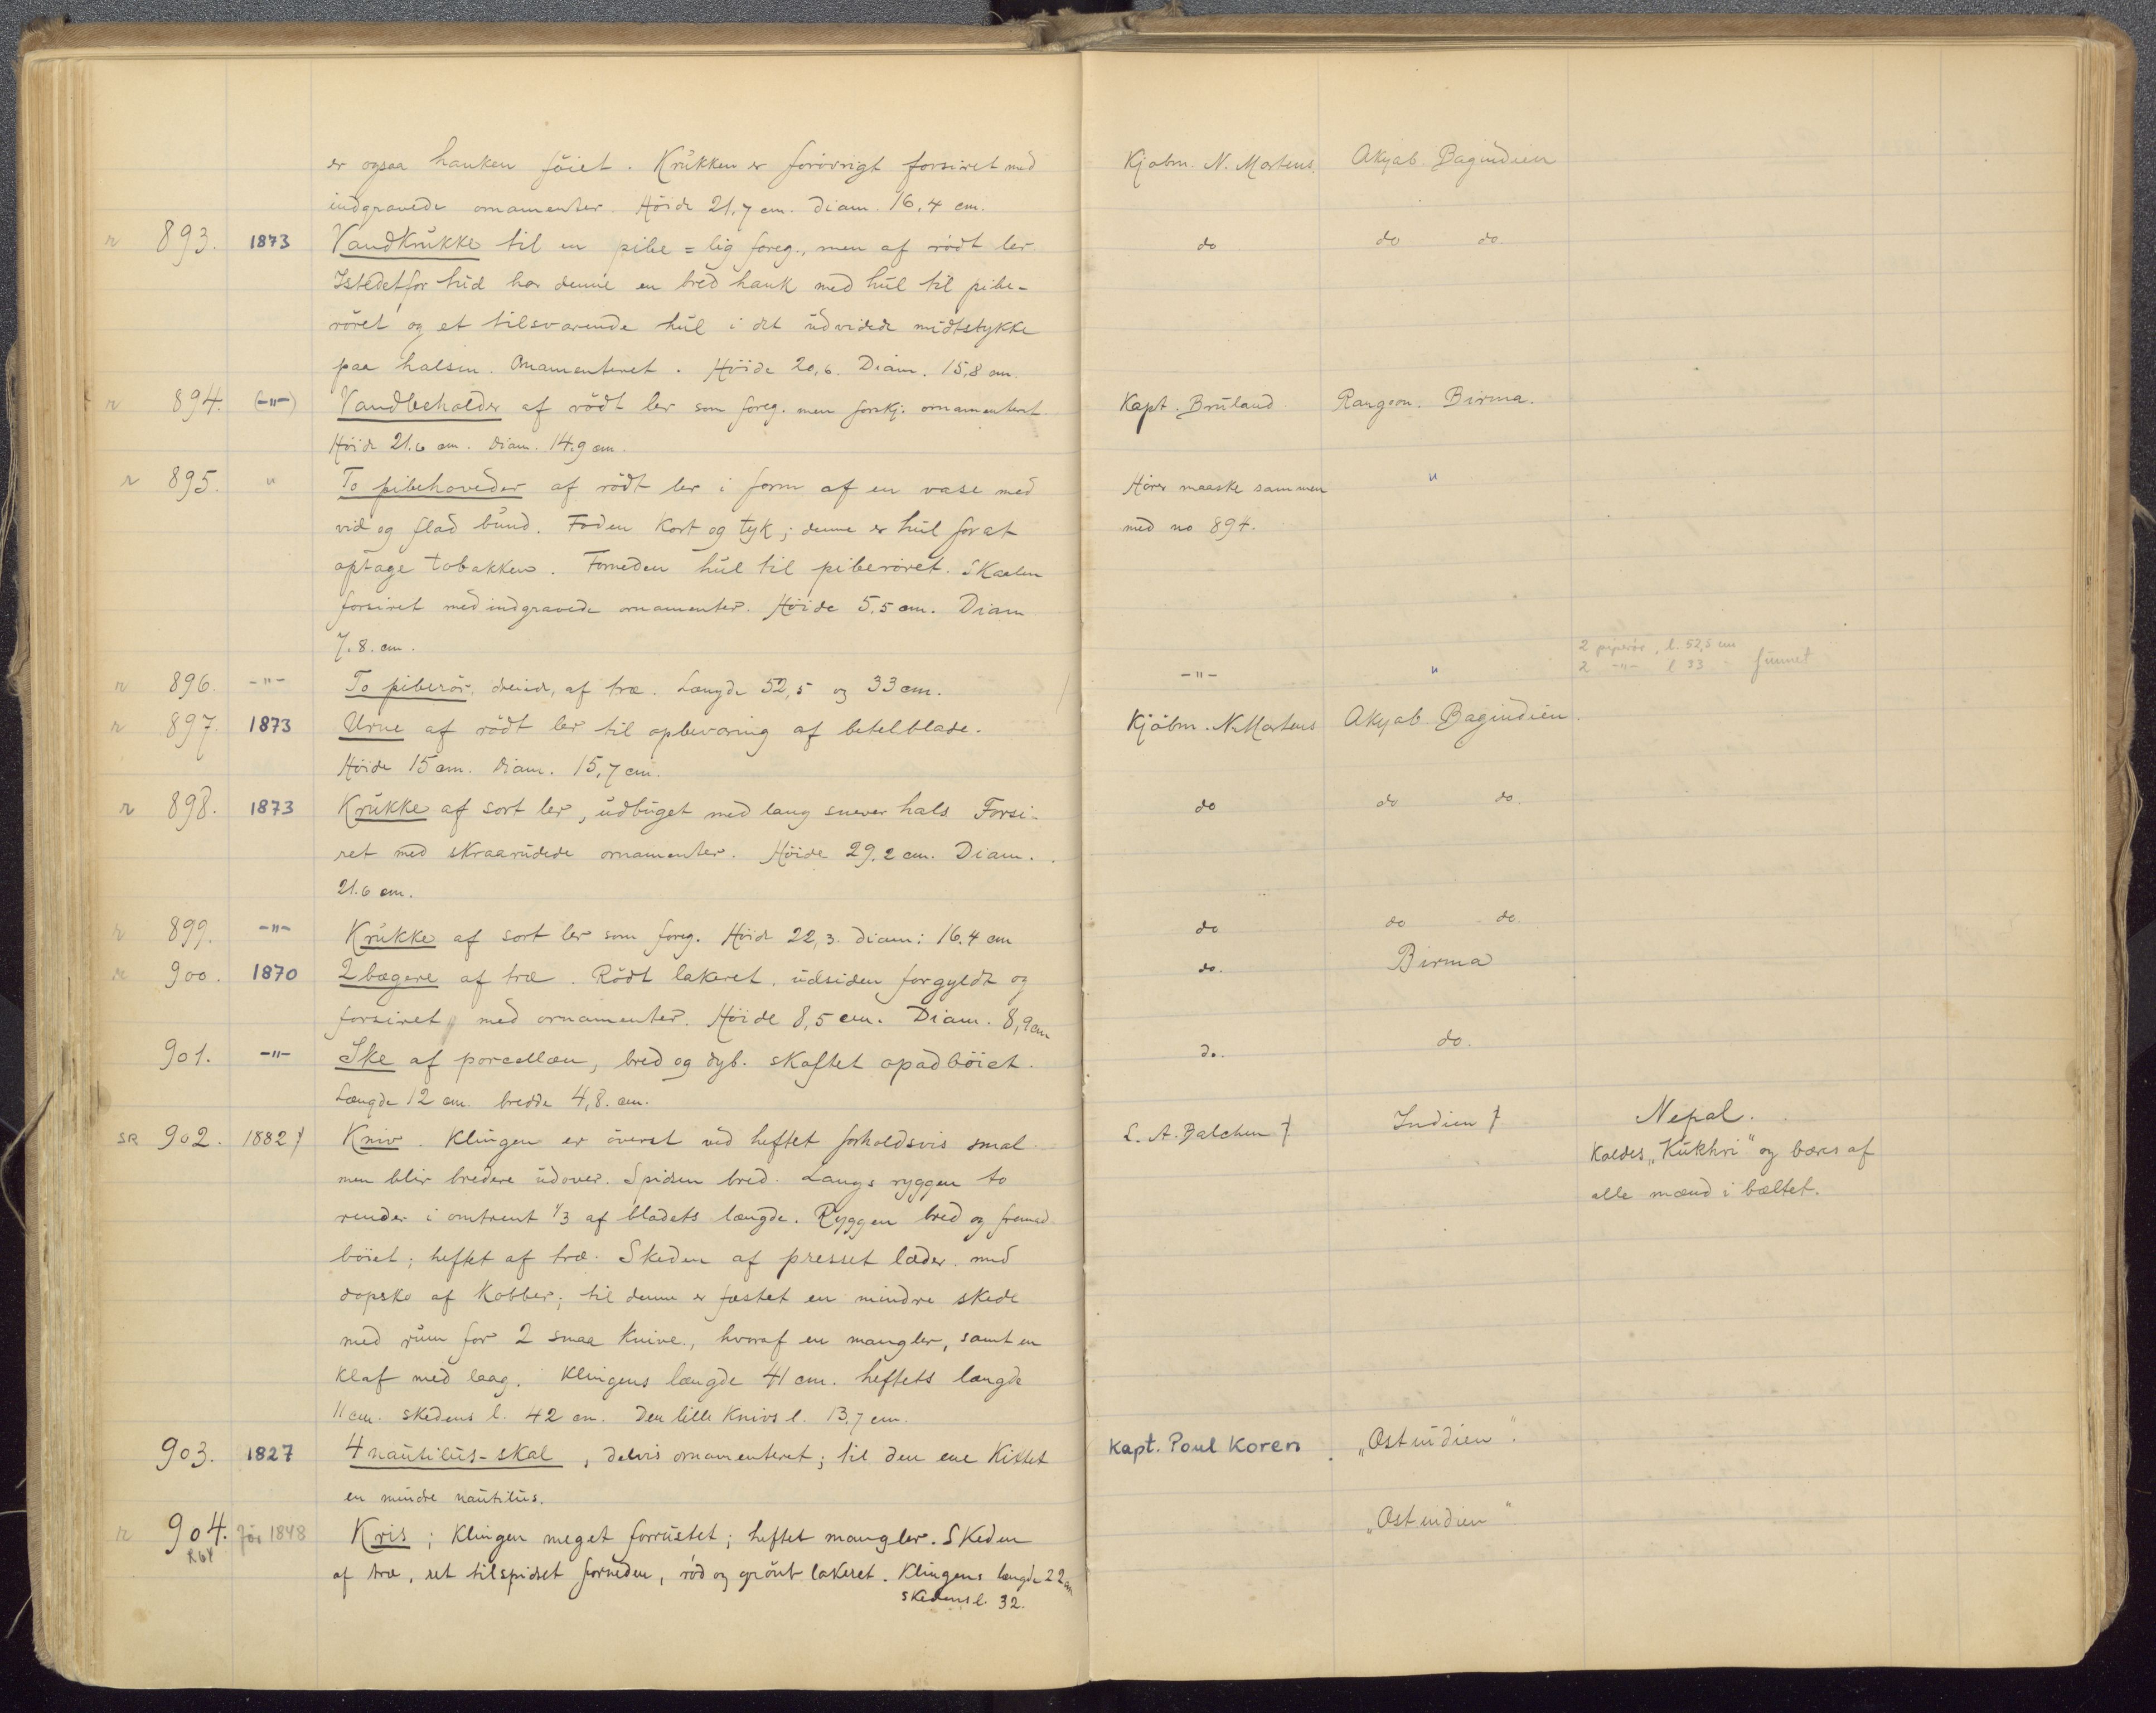 er ogsaa hanken föiet. Krukken er forövrigt forsiret med Kjøbm. N. Martens. Akyab. Bagindien
indgravede ornamenter. Höide 21,7 cm. Diam. 16,4 cm.
r 893. 1873 Vandkrukke til en pibe = lig foreg., men af rödt ler do do do.
Istedetfor tud har denne en bred hank med hul til pibe-
röret og et tilsvarende hul i det udvidede midtstykke
paa halsen. Ornamenteret. Höide 20,6. Diam. 15,8 cm.
r 894. (-"-) Vandbeholder af rödt ler som foreg. men forskj. ornamenteret Kapt. Bruland Rangoon. Birma.
Höide 21.6 cm. Diam. 14.9 cm.
r 895. " To pibehoveder af rödt ler i form af en vase med Hörer maaske sammen "
vid og flad bund. Foden kort og tyk; denne er hul for at med no 894.
optage tobakken. Forneden hul til piberöret. Skaalen
forsiret med indgravede ornamenter. Höide 5,5 cm. Diam
7.8. cm. 2 piperør, l. 52,5 cm
2 -"- l 33 - funnet
r 896. -"- To piberör, dreiede, af træ. Længde 52,5 og 33 cm. -"- "
r 897. 1873 Urne af rödt ler til opbevaring af betelblade. Kjöbm. N. Martens Akyab Bagindien.
Höide 15 cm. Diam. 15,7 cm.
r 898. 1873 Krukke af sort ler, udbuget med lang snever hals Forsi- do do do.
ret med skraarudede ornamenter. Höide 29.2 cm. Diam.
21.6 cm.
r 899. -"- Krukke af sort ler som foreg. Höide 22,3. Diam: 16.4 cm do do do.
r 900. 1870 2 bægere af træ. Rödt lakeret. udsiden forgyldt og do. Birma
forsiret med ornamenter. Höide 8,5 cm. Diam. 8,9 cm
901. -"- Ske af porcellæn, bred og dyb. skaftet opadböiet. do. do.
Længde 12 cm. bredde 4,8. cm.
SR 902. 1882 Kniv. Klingen er överst ved heftet forholdsvis smal L. A. Balchen Indien Nepal.
men blir bredere udover. Spidsen bred. Langs ryggen to Kaldes „Kukhri" og bæres af
render i omtrent 1/3 af bladets længde. Ryggen bred og fremad alle mænd i bæltet.
böiet; heftet af træ. Skeden af presset læder med
dopsko af Kobber; til denne er fæstet en mindre skede
med rum for 2 smaa Knive, hvoraf en mangler, samt en
Klaf med laag. Klingens længde 41 cm. heftets længde
11 cm. skedens l. 42 cm. Den lille Knivs l. 13.7 cm.
903. 1827 4 nautilus-skal, delvis ornamenteret; til den ene Kittet Kapt. Poul Koren „Ostindien".
en mindre nautilus.
r 904. för 1848 Kris; Klingen meget forrustet; heftet mangler. Skeden „Ostindien"
R64 af træ, ret tilspidset forneden, röd og grönt lakeret. Klingens længde 22 cm
skedens l. 32.